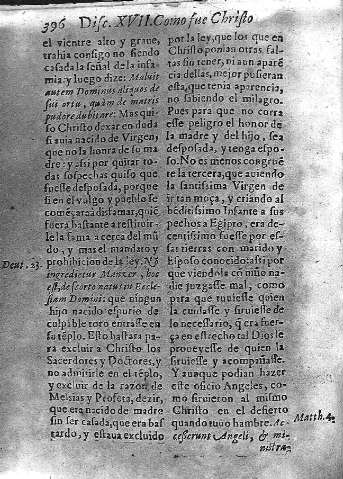 396 Disc. XVII. Como fue Christo
el vientre alto y graue,
trahia consigo no siendo
casada la señal de la infa
mia: y luego dize: Maluit
autem Dominus aliquos de
suo ortu, quàm de matris
pudore dubitare: Mas qui
so Christo dexar en duda
si auia nacido de Virgen,
que no la honra de su ma
dre: y assi por quitar to
das sospechas quiso que
fuesse desposada, porque
si en el vulgo y pueblo se
començara a disfamar, quiẽ
fuera bastante a restituir-
le la fama acerca del mũ
do, y mas el mandato y
prohibicion de la ley. Nõ
Deut. 23.
ingredietur Manzer, hoc
est, de scorto natus in Eccle
siam Domini: que ningun
hijo nacido espurio de
culpable toro entrasse en
su tẽplo. Esto bastara pa
ra excluir a Christo los
Sacerdotes y Doctores, y
no admitirle en el tẽplo,
y excluir de la razon de
Messias y Profeta, dezir,
que era nacido de madre
sin ser casada, que era bas
tardo, y estaua excluido
por la ley, que los que en
Christo ponian otras fal-
tas sin tener, ni aun apare
cia dellas, mejor pusieran
esta, que tenia aparencia,
no sabiendo el milagro.
Pues para que no corra
esse peligro el honor de
la madre y del hijo, sea
desposada, y tenga espo-
so. No es menos congruẽ
te la tercera, que auiendo
la santissima Virgen de
ir tan moça, y criando al
bẽditissimo Infante a sus
pechos a Egipto, era de-
centissimo fuesse por es-
sas tierras con marido y
Esposo conocido: assi por
que viendola cõ niño na-
die juzgasse mal, como
para que tuuiesse quien
la cuidasse y siruiesse de
lo necessario, q̃ era fuer-
ça en estrecho tal Dios le
proueyesse de quien la
siruiesse y acompañasse.
Y aunque podian hazer
este oficio Angeles, co-
mo siruieron al mismo
Christo en el desierto
quando tuuo hambre. Ac-
Matth. 4.
cesserunt Angeli, & mi-
nistra-